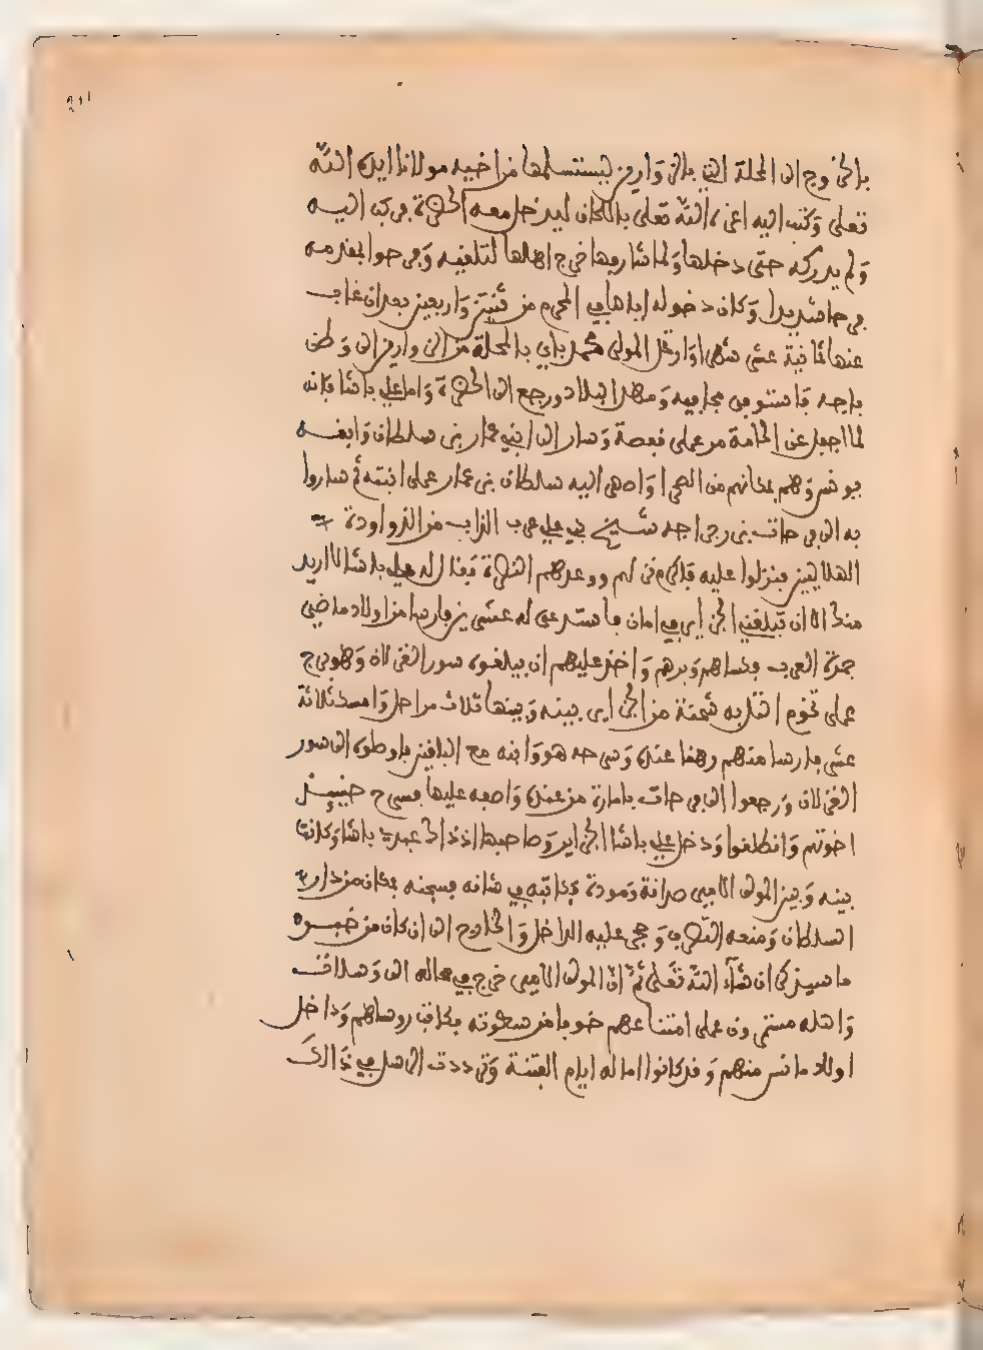 بالخروج الى المحلة التي بالزوارين ليستسلمها من اخيه مولانا ايده الله
تعلى وكتب اليه اعزه الله تعلى باللحاق ليدخل معه الحضرة فركب اليه
ولم يدركه حتى دخلها ولما شارفها خرج اهلها لتلقيه وفرحوا بمقدمه
فرحا شديدا وكان دخوله اياها في المحرم من ثنتين واربعين بعد ان غاب
عنها ثمانية عشر شهرا وارتحل المولى محمد باي بالمحلة من الزوارين الى وطن
باجه فاستوفى مجابيه ومهد البلاد ورجع الى الحضرة واما علي باشا فانه
لما اجفل عن الحامة مر على قفصة وسار الى ابني عمار بن سلطان وابنه
يونس وهم بمكانهم من الصحرا واصهر اليه سلطان بن عمار على ابنته ثم ساروا
به الى فرحات بن رجراجه شيخ بني علي عرب الزاب من الذواودة
الهلاليين فنزلوا عليه فاكرم نزلهم ووعدهم النصرة فقال له علي باشا لا اريد
منك الا ان تبلغني الجزاير في امان فاستدعى له عشرين فارسا من اولاد ماضي
حمزة العرب فكساهم وبرهم واخذ عليهم ان يبلغوه سور الغزلان وهو برج
على تخوم التل به شحنة من الجزاير بينه وبينها ثلاث مراحل وامسك ثلاثة
عشر فارسا منهم رهنا عنده وسرحه هو وابنه مع الباقين فاوصلوه الى سور
الغزلان ورجعوا الى فرحات بامارة من عنده واصبه عليها فسرح حينيذ
اخوتهم وانطلقوا ودخل علي باشا الجزاير وصاحبها اذ ذاك عبدي باشا وكانت
بينه وبين المولى الامير صداقة ومودة فكاتبه في شانه فسجنه بمكان من دار
السلطان ومنعه التصرف وحجر عليه الداخل والخارج الى ان كان من خبره
ما سيذكر ان شآء الله تعلى ثم ان المولى الامير خرج في عماله الى وسلات
واهله مستمرون على امتناعهم خوفا من سطوته فكاتب روساهم وداخل
اولاد مانس منهم وقد كانوا اماله ايام الفتنة وترددت الرسل في ذالك